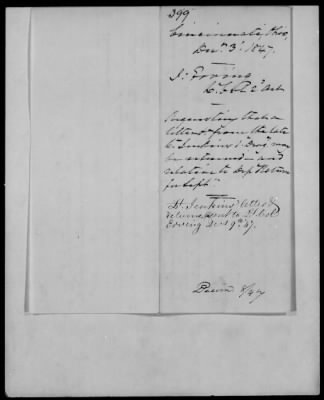 299
Cincinnati, Ohio,
Decr. 3d 1847.
J. Erving
Lt. Col. 2d Art
Requesting that a
letter from the late
Lt. Jenkins 1" Drag. may
be returned and
relative to Dep. Return
for Sept.
Lt. Jenkins' letter &
return sent to Lt. Col.
Erving Dec. 9th 47.
8/47